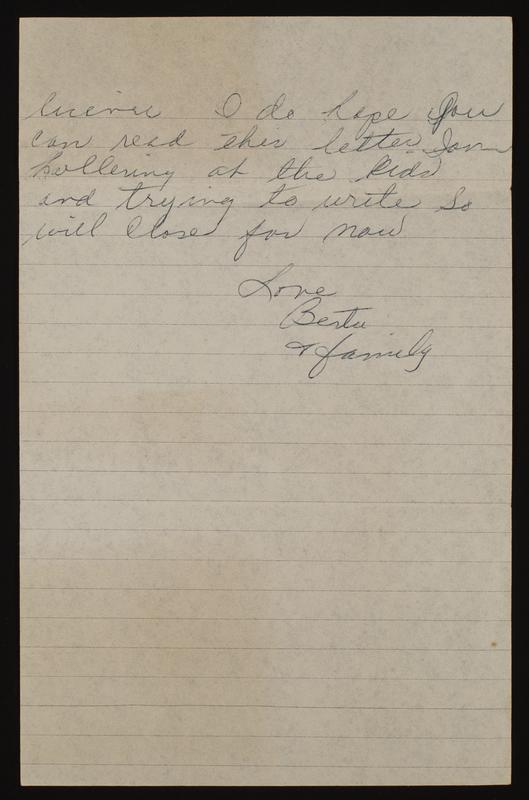 I do hope you
can read this letter I am
hollering at the kids
and trying to write So
will close for now
Love
Bertie
& family